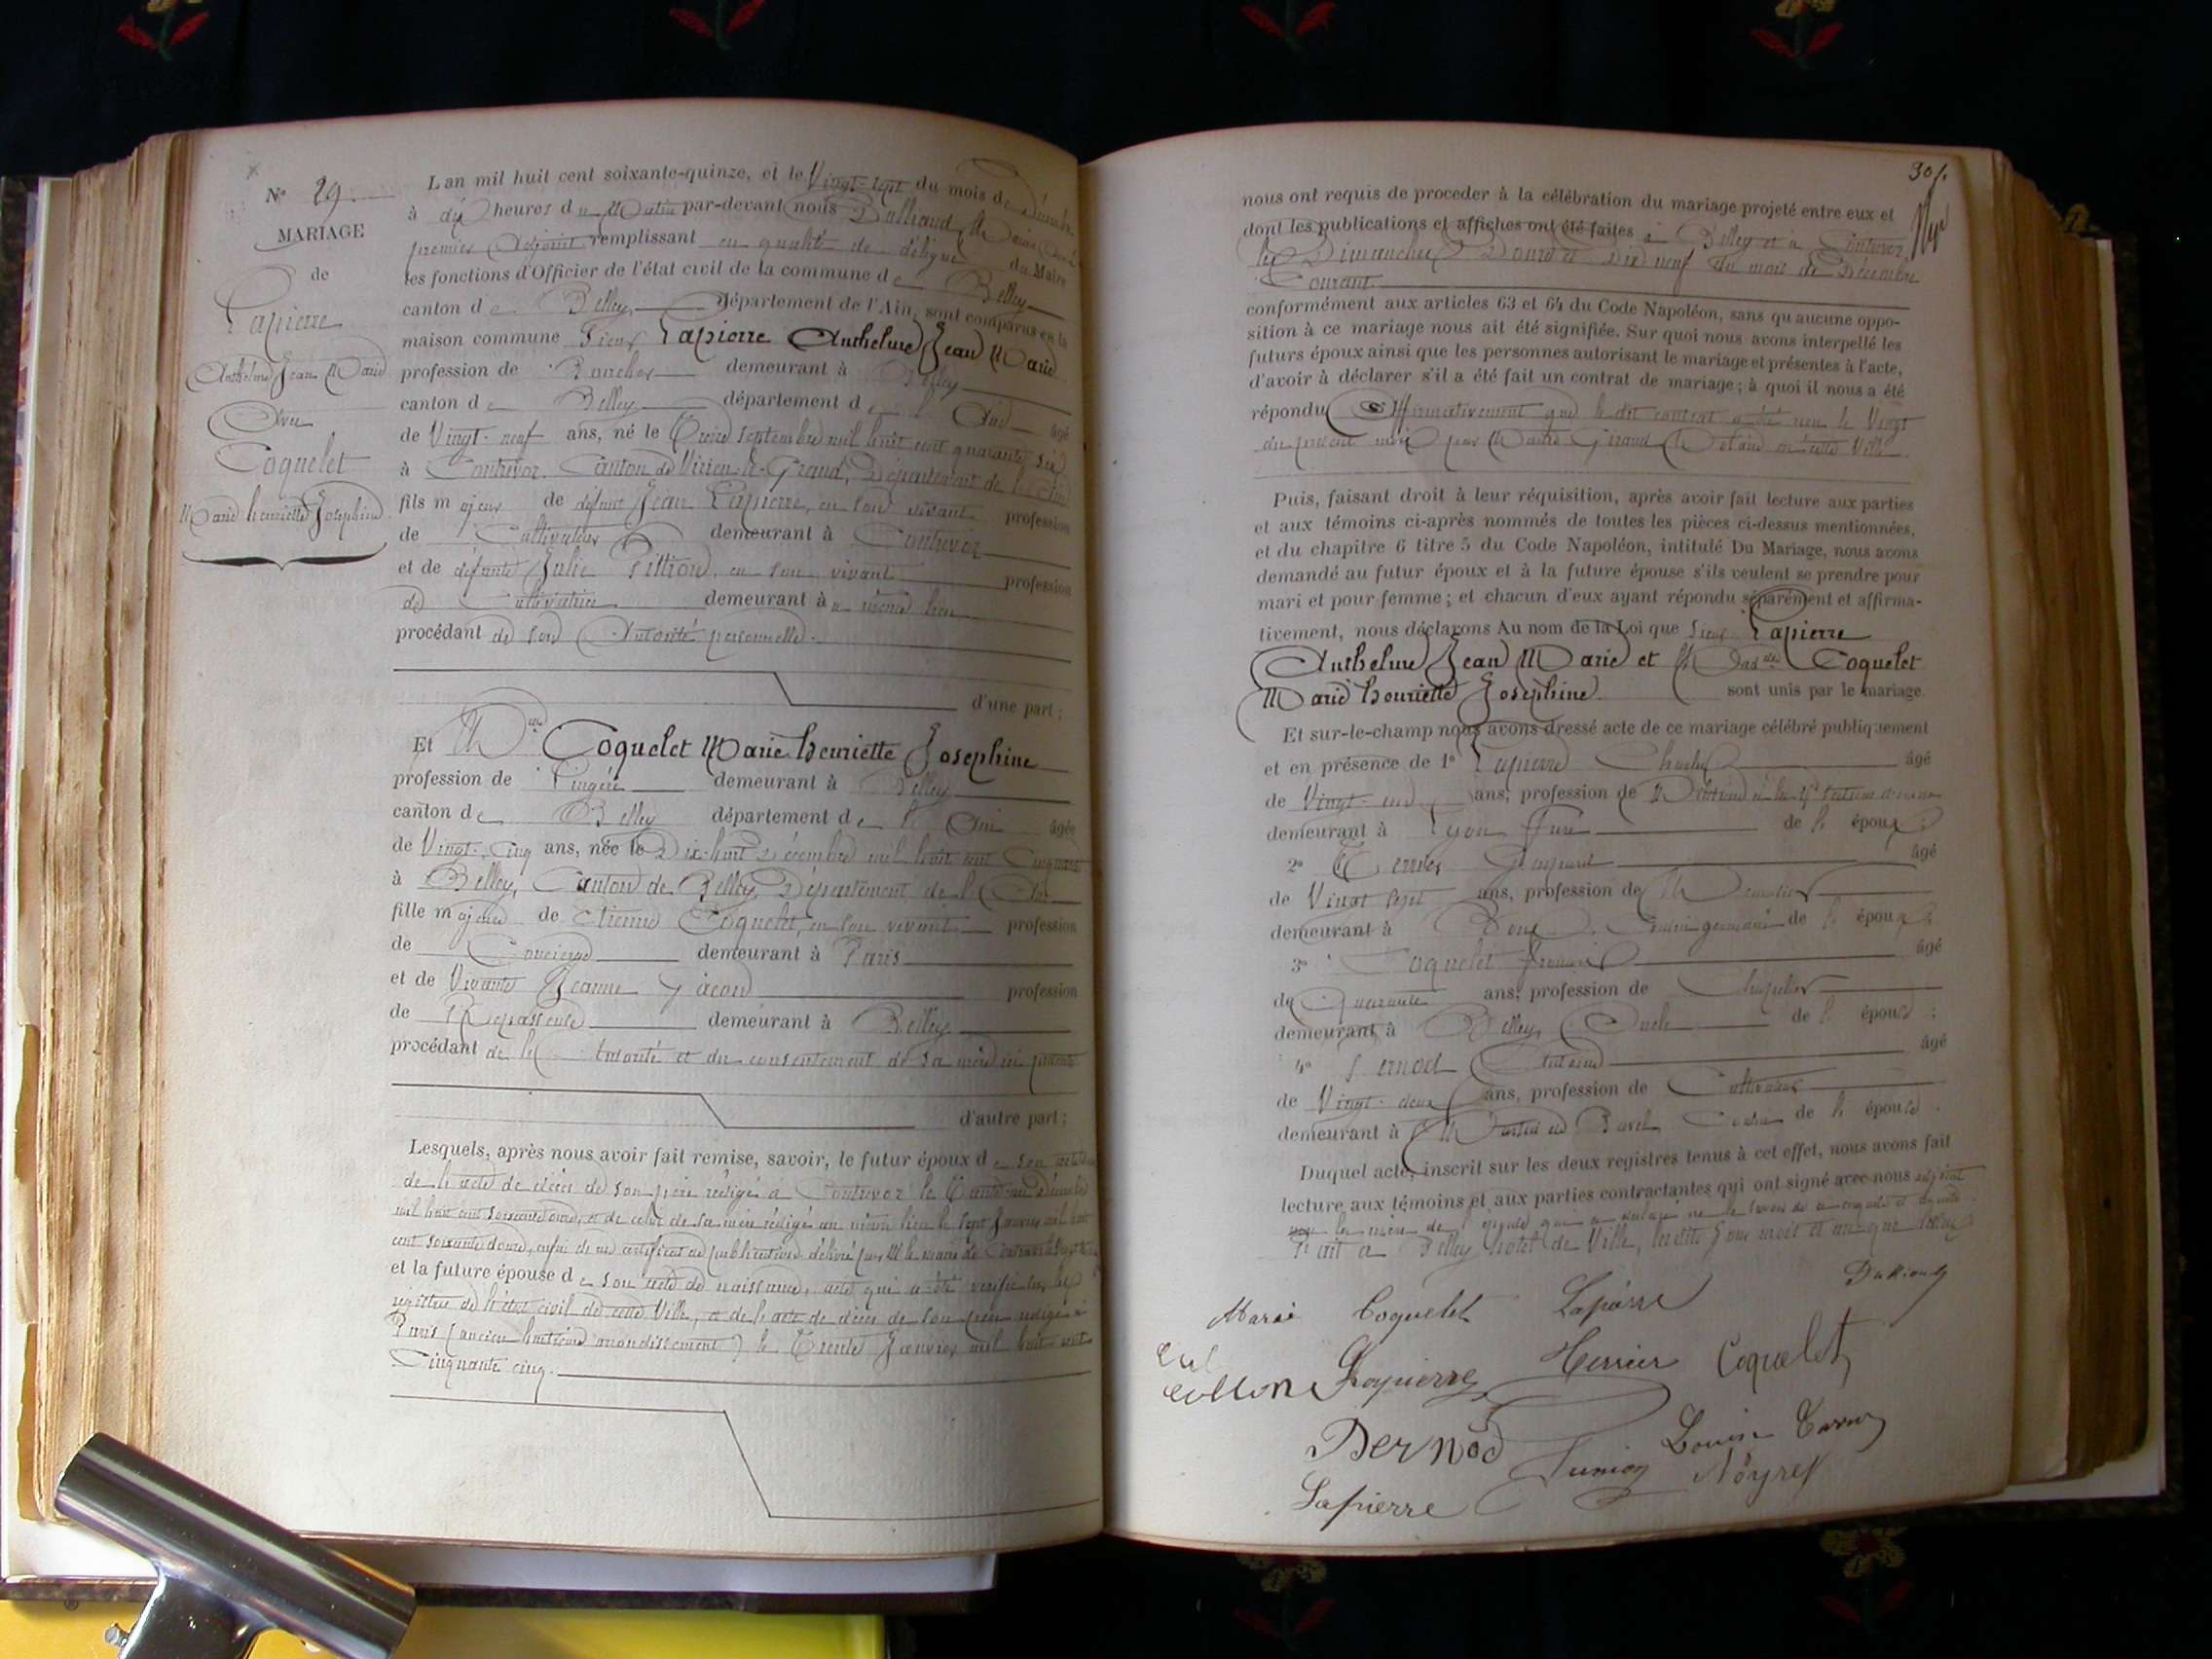 N° 29.
MARIAGE
de
Lapierre
Anthelme Jean Marie
Avec
Coquelet
Marie henriette Josephine
L'an mil huit cent soixante-quinze, et le Vingt-sept du mois de Décembre
à dix heures du Matin par-devant nous
premier Adjoint remplissant en qualité de délégué du Maire
les fonctions d'Officier de l'état civil de la commune de Belley
canton de Belley département de l'Ain, sont comparus en la
maison commune Sieur Lapierre Anthelme Jean Marie
profession de Boucher demeurant à Belley
canton de Belley département de l'Ain âgé
de Vingt-neuf ans, né le Onze Septembre mil huit cent quarante six
à Contrevoz, Canton de Virieu-le-Grand, Département de l'Ain
fils majeur de défunt Jean Lapierre, en son vivant profession
de Cultivateur demeurant à Contrevoz
et de défunte Julie en son vivant profession
de Cultivatrice demeurant à même lieu
procédant de son Autorité personnelle.
d'une part ;
Et Mlle Coquelet Marie henriette Josephine
profession de Lingère demeurant à Belley
canton de Belley département de l'Ain âgée
de Vingt-Cinq ans, née le Dix-huit Décembre mil huit cent Cinquante
à Belley, Canton de Belley, Département de l'Ain
fille majeure de Etienne Coquelet, en son vivant profession
de Concierge demeurant à Paris
et de Vivante Jeanne profession
de Repasseuse demeurant à Belley
procédant de l'autorité et du consentement de sa mère ici présente
d'autre part ;
Lesquels, après nous avoir fait remise, savoir, le futur époux de son acte
de l'acte de décès de son père rédigé à Contrevoz le Décembre
mil huit cent soixante onze, et de celui de sa mère rédigé au même lieu le sept Janvier mil huit
cent soixante douze, enfin de un certificat de publications délivré par M. le maire de Contrevoz
et la future épouse de son acte de naissance, acte qui a été vérifié sur les
registres de l'état civil de cette Ville, et de l'acte de décès de son père rédigé à
Paris (ancien huitième arrondissement) le Trente Janvier mil huit cent
Cinquante cinq.
301.
nous ont requis de proceder à la célébration du mariage projeté entre eux et
dont les publications et affiches ont été faites à Belley et à Contrevoz
les Dimanches Douze et Dix neuf du mois de Décembre
Courant.
conformément aux articles 63 et 64 du Code Napoléon, sans qu'aucune oppo-
sition à ce mariage nous ait été signifiée. Sur quoi nous avons interpellé les
futurs époux ainsi que les personnes autorisant le mariage et présentes à l'acte,
d'avoir à déclarer s'il a été fait un contrat de mariage ; à quoi il nous a été
répondu Affirmativement que le dit contrat a été reçu le Vingt
du présent mois par Maître Giraud Notaire en cette Ville.
Puis, faisant droit à leur réquisition, après avoir fait lecture aux parties
et aux témoins ci-après nommés de toutes les pièces ci-dessus mentionnées,
et du chapitre 6 titre 5 du Code Napoléon, intitulé Du Mariage, nous avons
demandé au futur époux et à la future épouse s'ils veulent se prendre pour
mari et pour femme ; et chacun d'eux ayant répondu séparément et affirma-
tivement, nous déclarons Au nom de la Loi que Sieur Lapierre
Anthelme Jean Marie et Coquelet
Marie henriette Josephine. sont unis par le mariage.
Et sur-le-champ nous avons dressé acte de ce mariage célébré publiquement
et en présence de 1° Lapierre Charles âgé
de Vingt ans, profession de
demeurant à Lyon frère de l'époux ;
2° Gaspard âgé
de Vingt Sept ans, profession de
demeurant à Cousin germain de l'époux ;
3° Coquelet François âgé
de Quarante ans, profession de Chapelier
demeurant à Belley, Oncle de l'épouse ;
4° Bernod Antoine âgé
de Vingt-deux ans, profession de Cultivateur
demeurant à Cousin de l'épouse.
Duquel acte, inscrit sur les deux registres tenus à cet effet, nous avons fait
lecture aux témoins et aux parties contractantes qui ont signé avec nous adjoint
non la mère de l'épouse qui a déclaré ne le savoir de ce enquise et requise
Fait à Belley hotel de Ville, les dits Jour mois et an que dessus
Marie Coquelet Lapierre
Lapierre Coquelet
Bernod Louise
Lapierre Noyrel